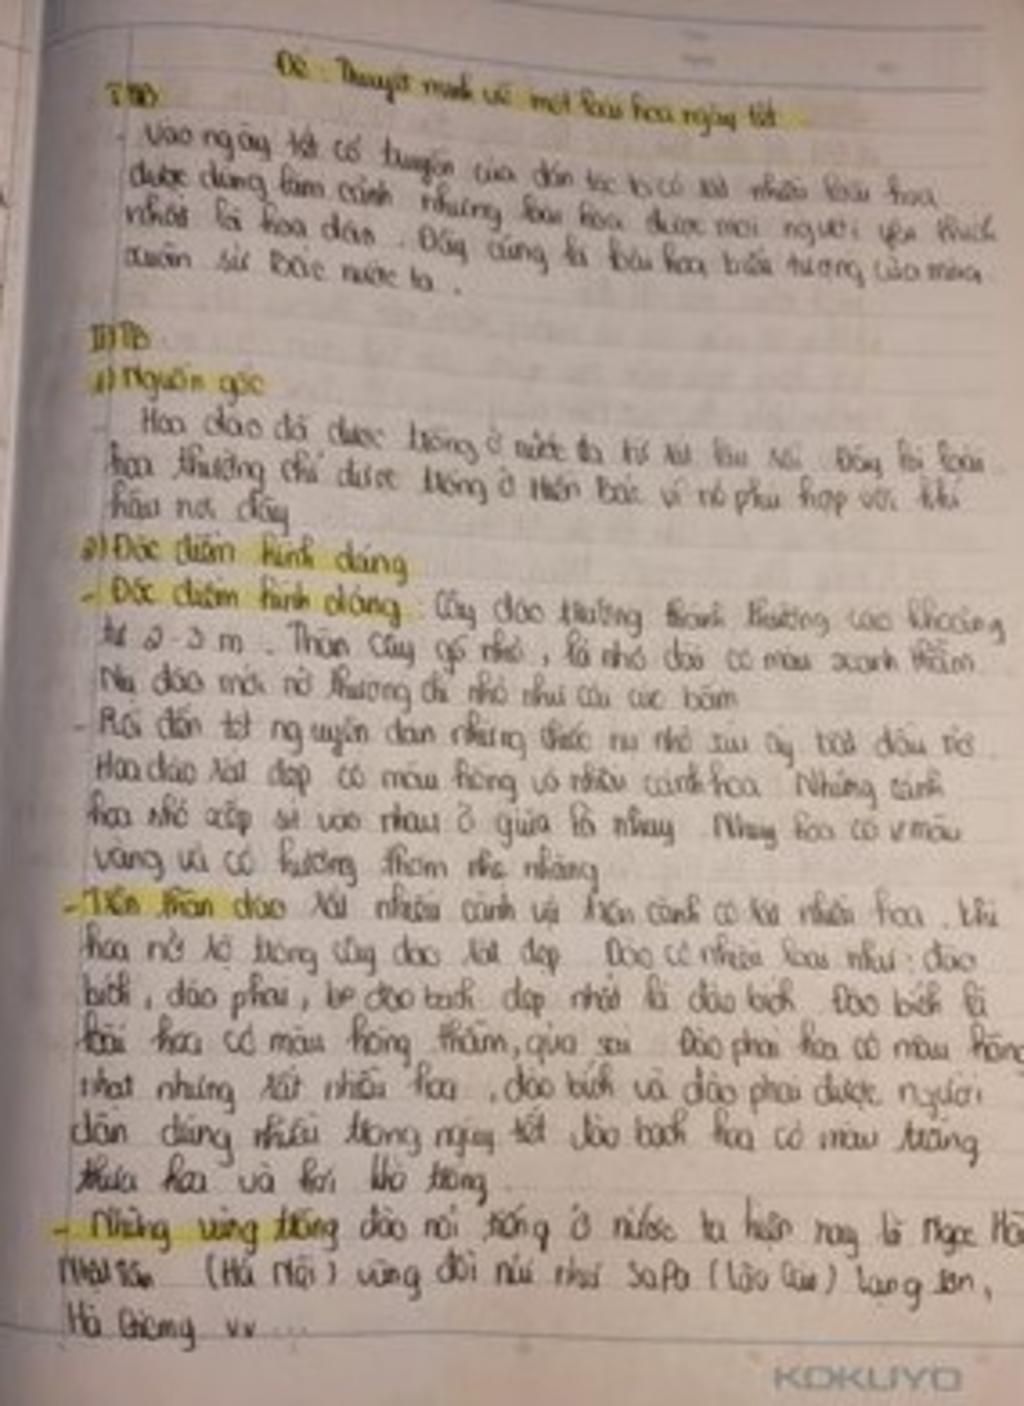 Đề: Thuyết minh về một loài hoa ngày tết
I MB
- Vào ngày tết cổ truyền của dân tộc ta có rất nhiều loài hoa
được dùng làm cảnh nhưng loài hoa được mọi người yêu thích
nhất là hoa đào. Đây cũng là loài hoa biểu tượng của mùa
xuân xứ Bắc nước ta.
II) TB
1) Nguồn gốc
Hoa đào đã được trồng ở nước ta từ rất lâu rồi. Đây là loài
hoa thường chỉ được trồng ở Miền Bắc vì nó phù hợp với khí
hậu nơi đây
2) Đặc điểm hình dáng
- Đặc điểm hình dáng: Cây đào trưởng thành thường cao khoảng
từ 2-3 m. Thân cây gỗ nhỏ, lá nhỏ dài có màu xanh thẫm
Nụ đào mới nở thường chỉ nhỏ như cái cúc bấm
- Rồi đến tết nguyên đán những chiếc nụ nhỏ xíu ấy bắt đầu nở
Hoa đào rất đẹp có màu hồng và nhiều cánh hoa Những cánh
hoa nhỏ xếp sít vào nhau ở giữa là nhụy Nhụy hoa có màu
vàng và có hương thơm nhẹ nhàng
- Trên thân đào rất nhiều cành và trên cành có rất nhiều hoa. Khi
hoa nở rộ trông cây đào rất đẹp Đào có nhiều loại như: đào
bích, đào phai, đào bạch đẹp nhất là đào bích Đào bích là
loài hoa có màu hồng thắm, quả sai Đào phai hoa có màu hồng
nhạt nhưng rất nhiều hoa, đào bích và đào phai được người
dân dùng nhiều trong ngày tết đào bạch hoa có màu trắng
thưa hoa và hơi khó trồng
- Những vùng trồng đào nổi tiếng ở nước ta hiện nay là Ngọc Hà
Nhật Tân (Hà Nội) vùng đồi núi như SaPa (Lào Cai) Lạng Sơn,
Hà Giang vv ...
KOKUYO